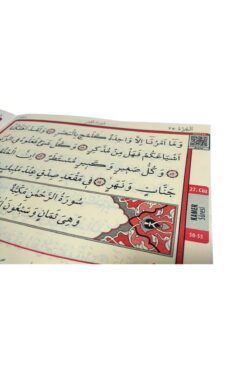 الجزء ٢٧
وَمَا أَمْرُنَا إِلَّا وَاحِدَةٌ كَلَمْحٍ بِالْبَصَرِ ۞ وَلَقَدْ أَهْلَكْنَا
أَشْيَاعَكُمْ فَهَلْ مِنْ مُدَّكِرٍ ۞ وَكُلُّ شَيْءٍ فَعَلُوهُ فِي الزُّبُرِ
وَكُلُّ صَغِيرٍ وَكَبِيرٍ مُسْتَطَرٌ ۞ إِنَّ الْمُتَّقِينَ
جَنَّاتٍ وَنَهَرٍ ۞ فِي مَقْعَدِ صِدْقٍ عِنْدَ مَلِيكٍ
سُورَةُ الرَّحْمٰنِ مَكِّيَّةٌ
وَهِيَ ثَمَانٍ وَسَبْعُونَ
27. Cüz
KAMER
Sûresi
50-55